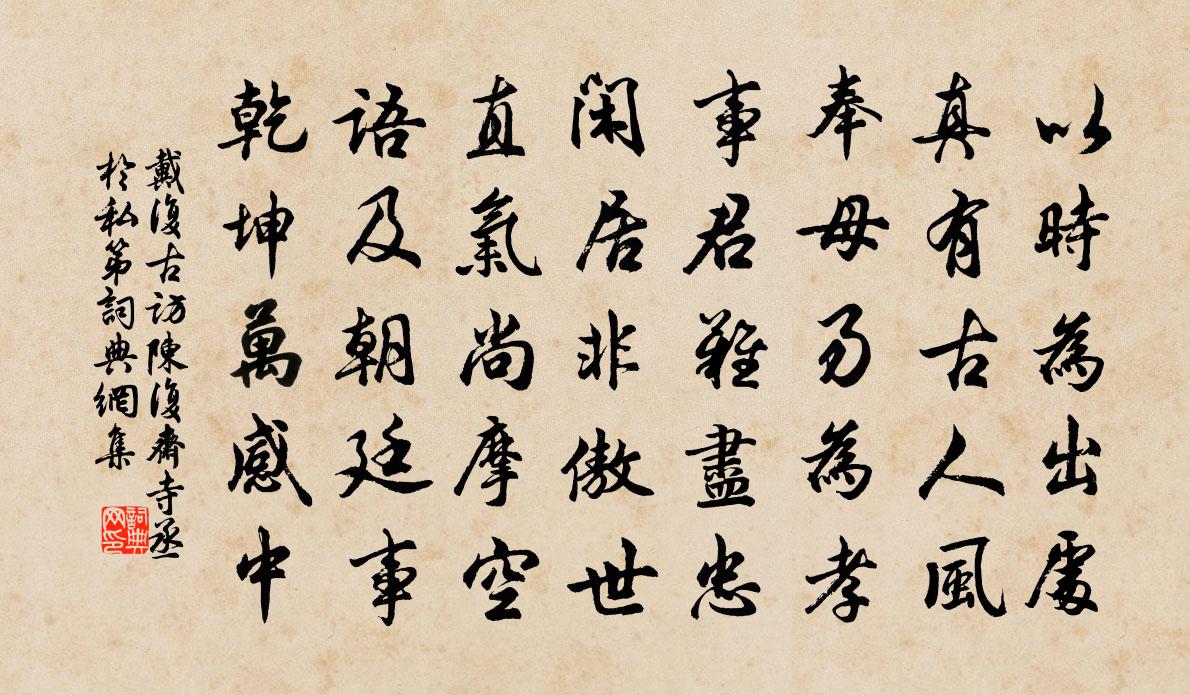 以時為出處
真有古人風
奉母易為孝
事君難盡忠
閑居非傲世
直氣尚摩空
語及朝廷事
乾坤萬感中
戴復古訪陳復齋寺丞
於私第詞典網集
詞典
网印